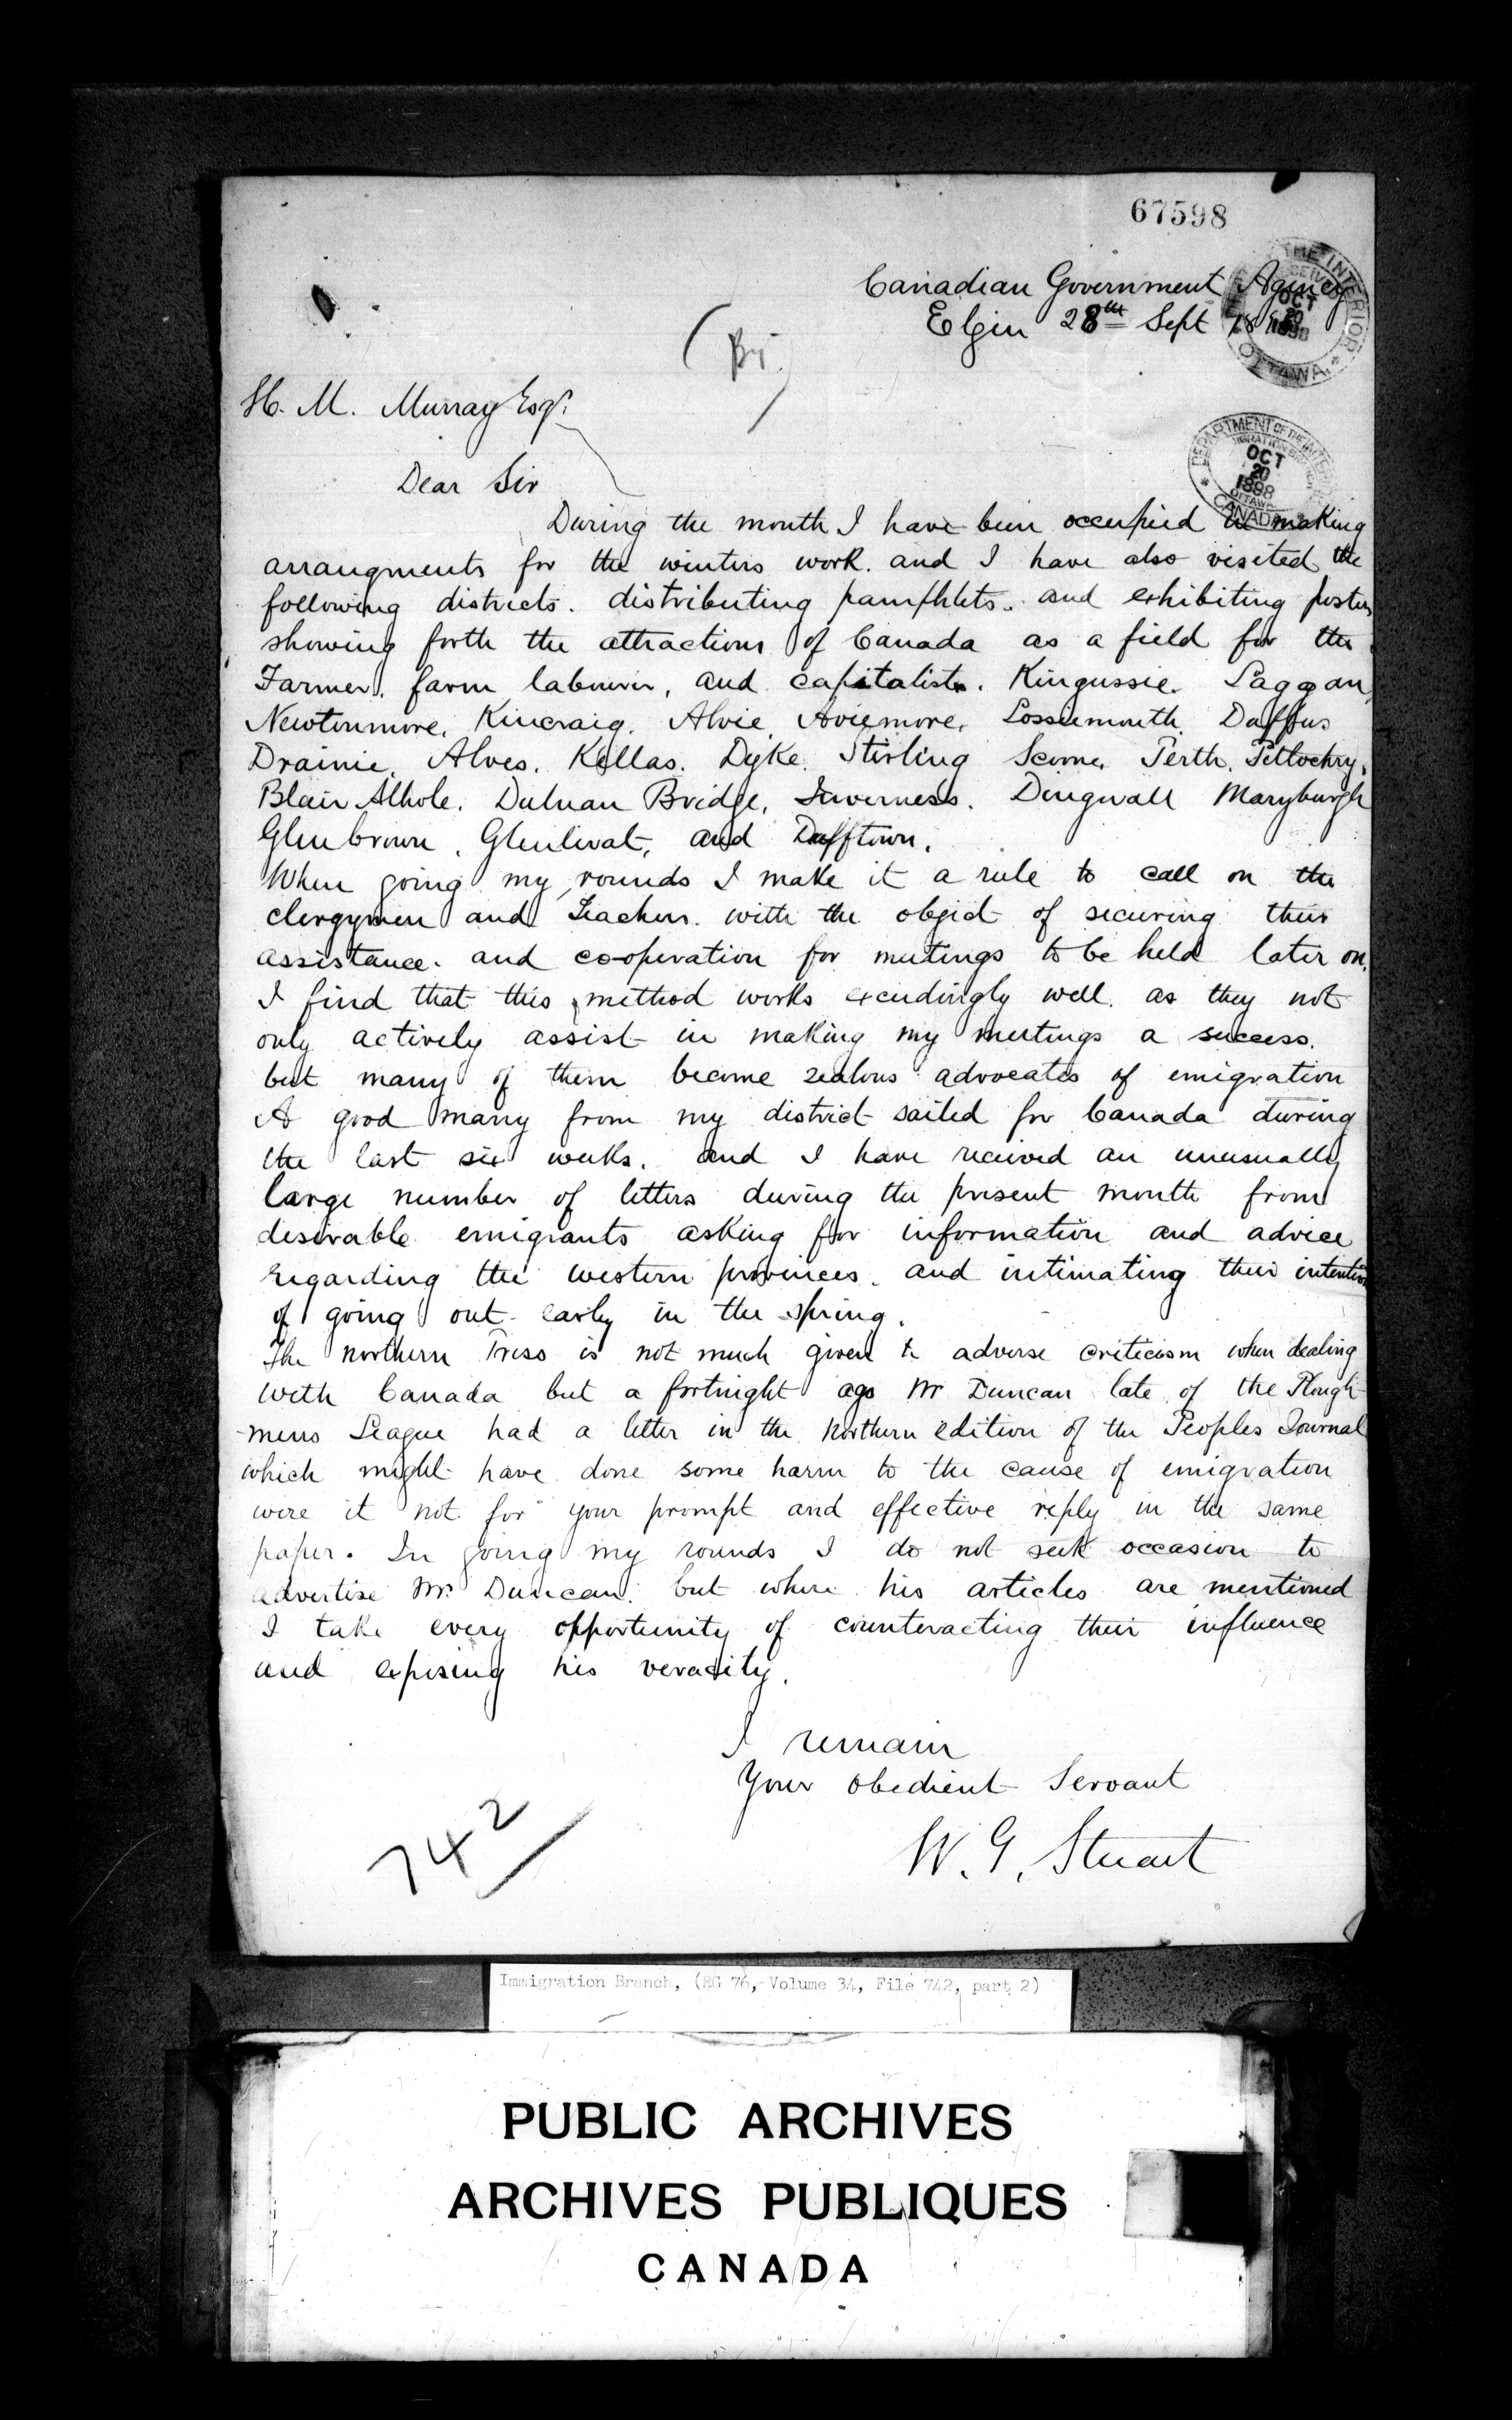 67598
Canadian Government Agency
Elgin 28th Sept 18
THE INTERIOR
OCT
20
1898
OTTAWA
H. M. Murray Esqr
DEPARTMENT OF THE INTERIOR
OCT
20
1898
OTTAWA
CANADA
Dear Sir
During the month I have been occupied in making
arrangments for the winters work. and I have also visited the
following districts. distributing pamphlets. and exhibiting posters
showing forth the attractions of Canada as a field for the
Farmer. farm labourer, and capitalist. Kingussie. Laggan
Newtonmore. Kincraig. Alvie. Aviemore. Lossiemouth. Duffus
Drainie. Alves. Kellas. Dyke. Stirling Scone. Perth. Pitlochry.
Blair Athole. Dulnan Bridge, Inverness. Dingwall Maryburgh
Glenbrown. Glenlivat, and Dufftown.
When going my rounds I make it a rule to call on the
clergymen and Teachers. with the object of securing their
assistance. and co-operation for meetings to be held later on.
I find that this method works exceedingly well. as they not
only actively assist in making my meetings a success.
but many of them become zealous advocates of emigration
A good many from my district sailed for Canada during
the last six weeks. and I have received an unusually
large number of letters during the present month from
desirable emigrants asking for information and advice
regarding the western provinces. and intimating their intention
of going out early in the spring.
The northern Press is not much given to adverse criticism when dealing
with Canada but a fortnight ago Mr Duncan late of the Plough-
-mens League had a letter in the Northern edition of the Peoples Journal
which might have done some harm to the cause of emigration
were it not for your prompt and effective reply in the same
paper. In going my rounds I do not seek occasion to
advertise Mr. Duncan. but where his articles are mentioned
I take every opportunity of counteracting their influence
and exposing his veracity.
I remain
Your Obedient Servant
W. G. Stuart
742
Immigration Branch, (RG 76, Volume 34, File 742, part 2)
PUBLIC ARCHIVES
ARCHIVES PUBLIQUES
CANADA